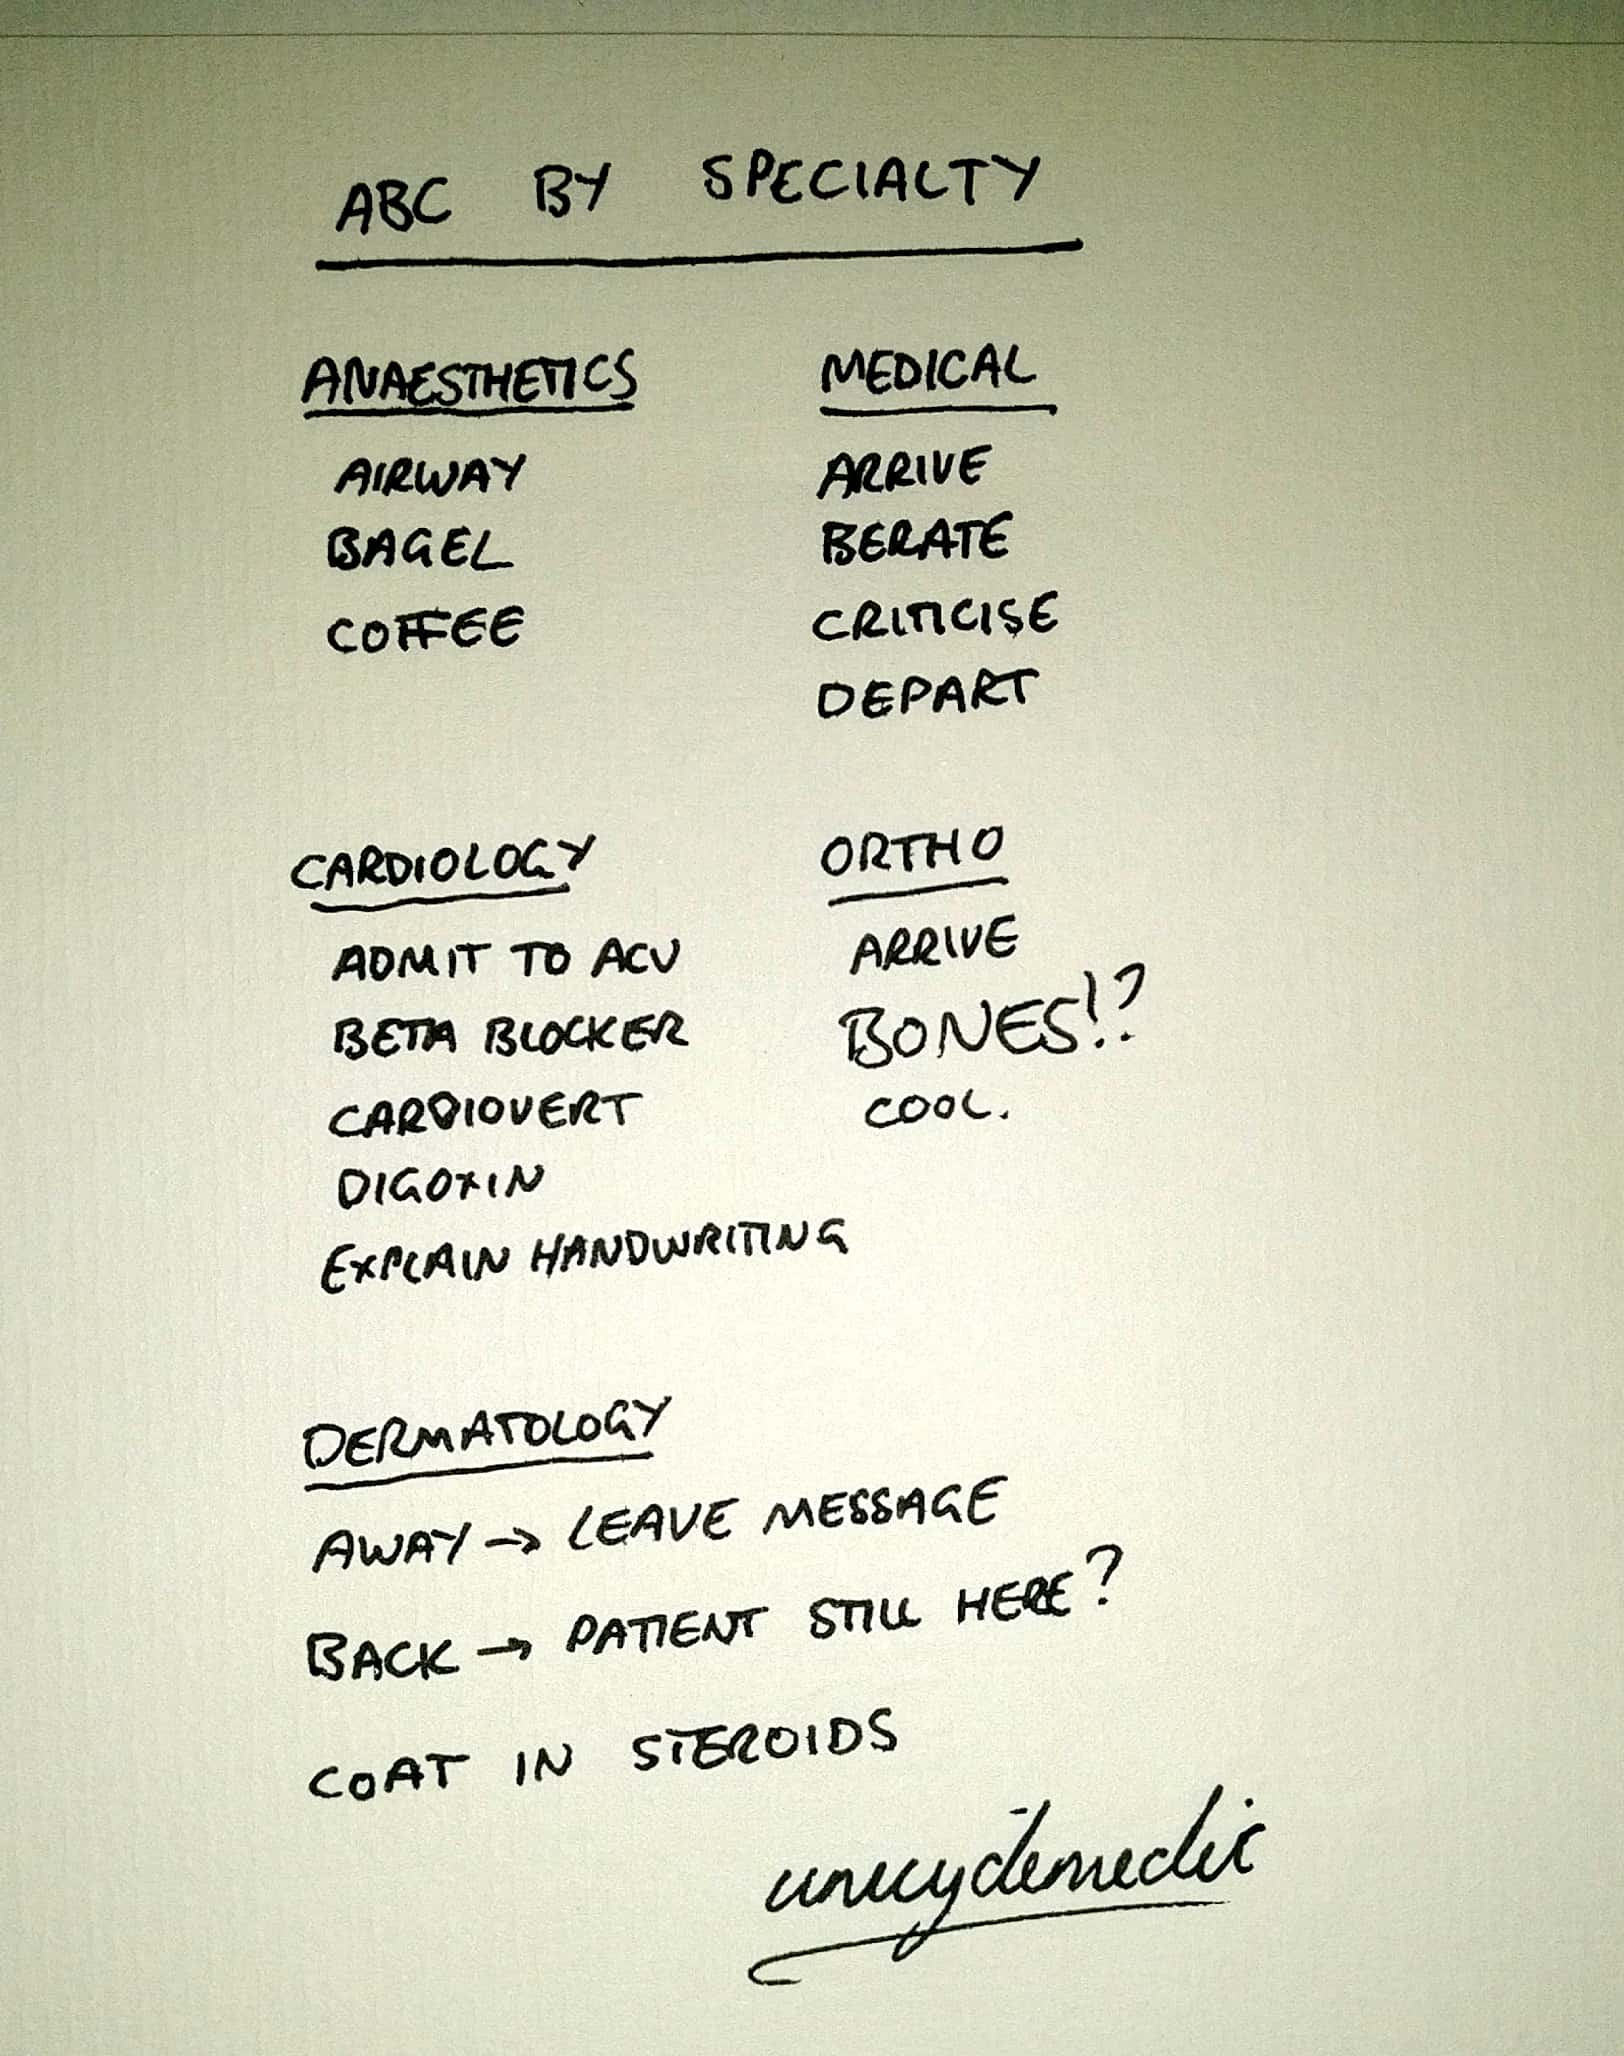 ABC BY SPECIALTY
ANAESTHETICS
AIRWAY
BAGEL
COFFEE
MEDICAL
ARRIVE
BERATE
CRITICISE
DEPART
CARDIOLOGY
ADMIT TO ACU
BETA BLOCKER
CARDIOVERT
DIGOXIN
EXPLAIN HANDWRITING
ORTHO
ARRIVE
BONES!?
COOL.
DERMATOLOGY
AWAY → LEAVE MESSAGE
BACK → PATIENT STILL HERE?
COAT IN STEROIDS
unicyclemedic